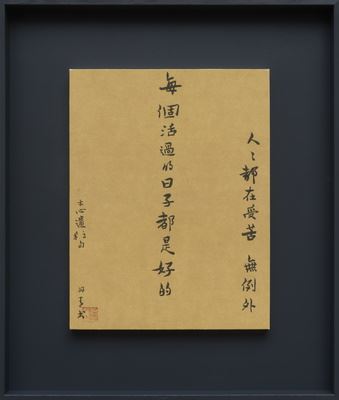 人々都在受苦 無例外
每個活過的日子都是好的